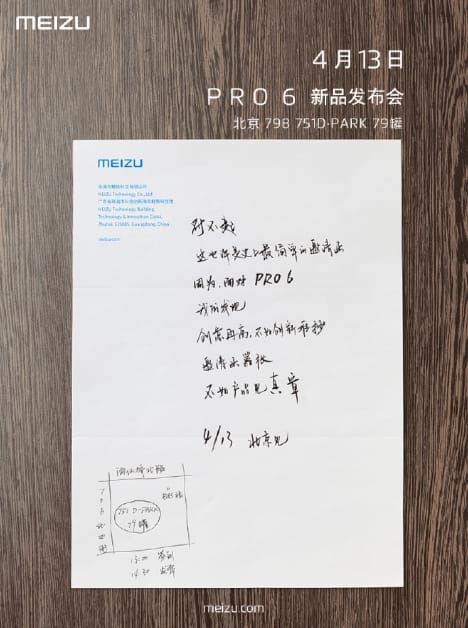 MEIZU
4月13日
PRO 6 新品发布会
北京 798 751D·PARK 79罐
MEIZU
MEIZU Technology Co., Ltd
MEIZU Technology Building,
Technology & Innovation Coast,
Zhuhai, 519085, Guangdong, China
meizu.com
对不起
这也许是史上最简单的邀请函
因为,面对 PRO 6
我们发现
创意再高,不如创新
邀请函
不如产品见真章
4/13 北京见
751 D-PARK
79罐
13:00 签到
14:30
meizu.com